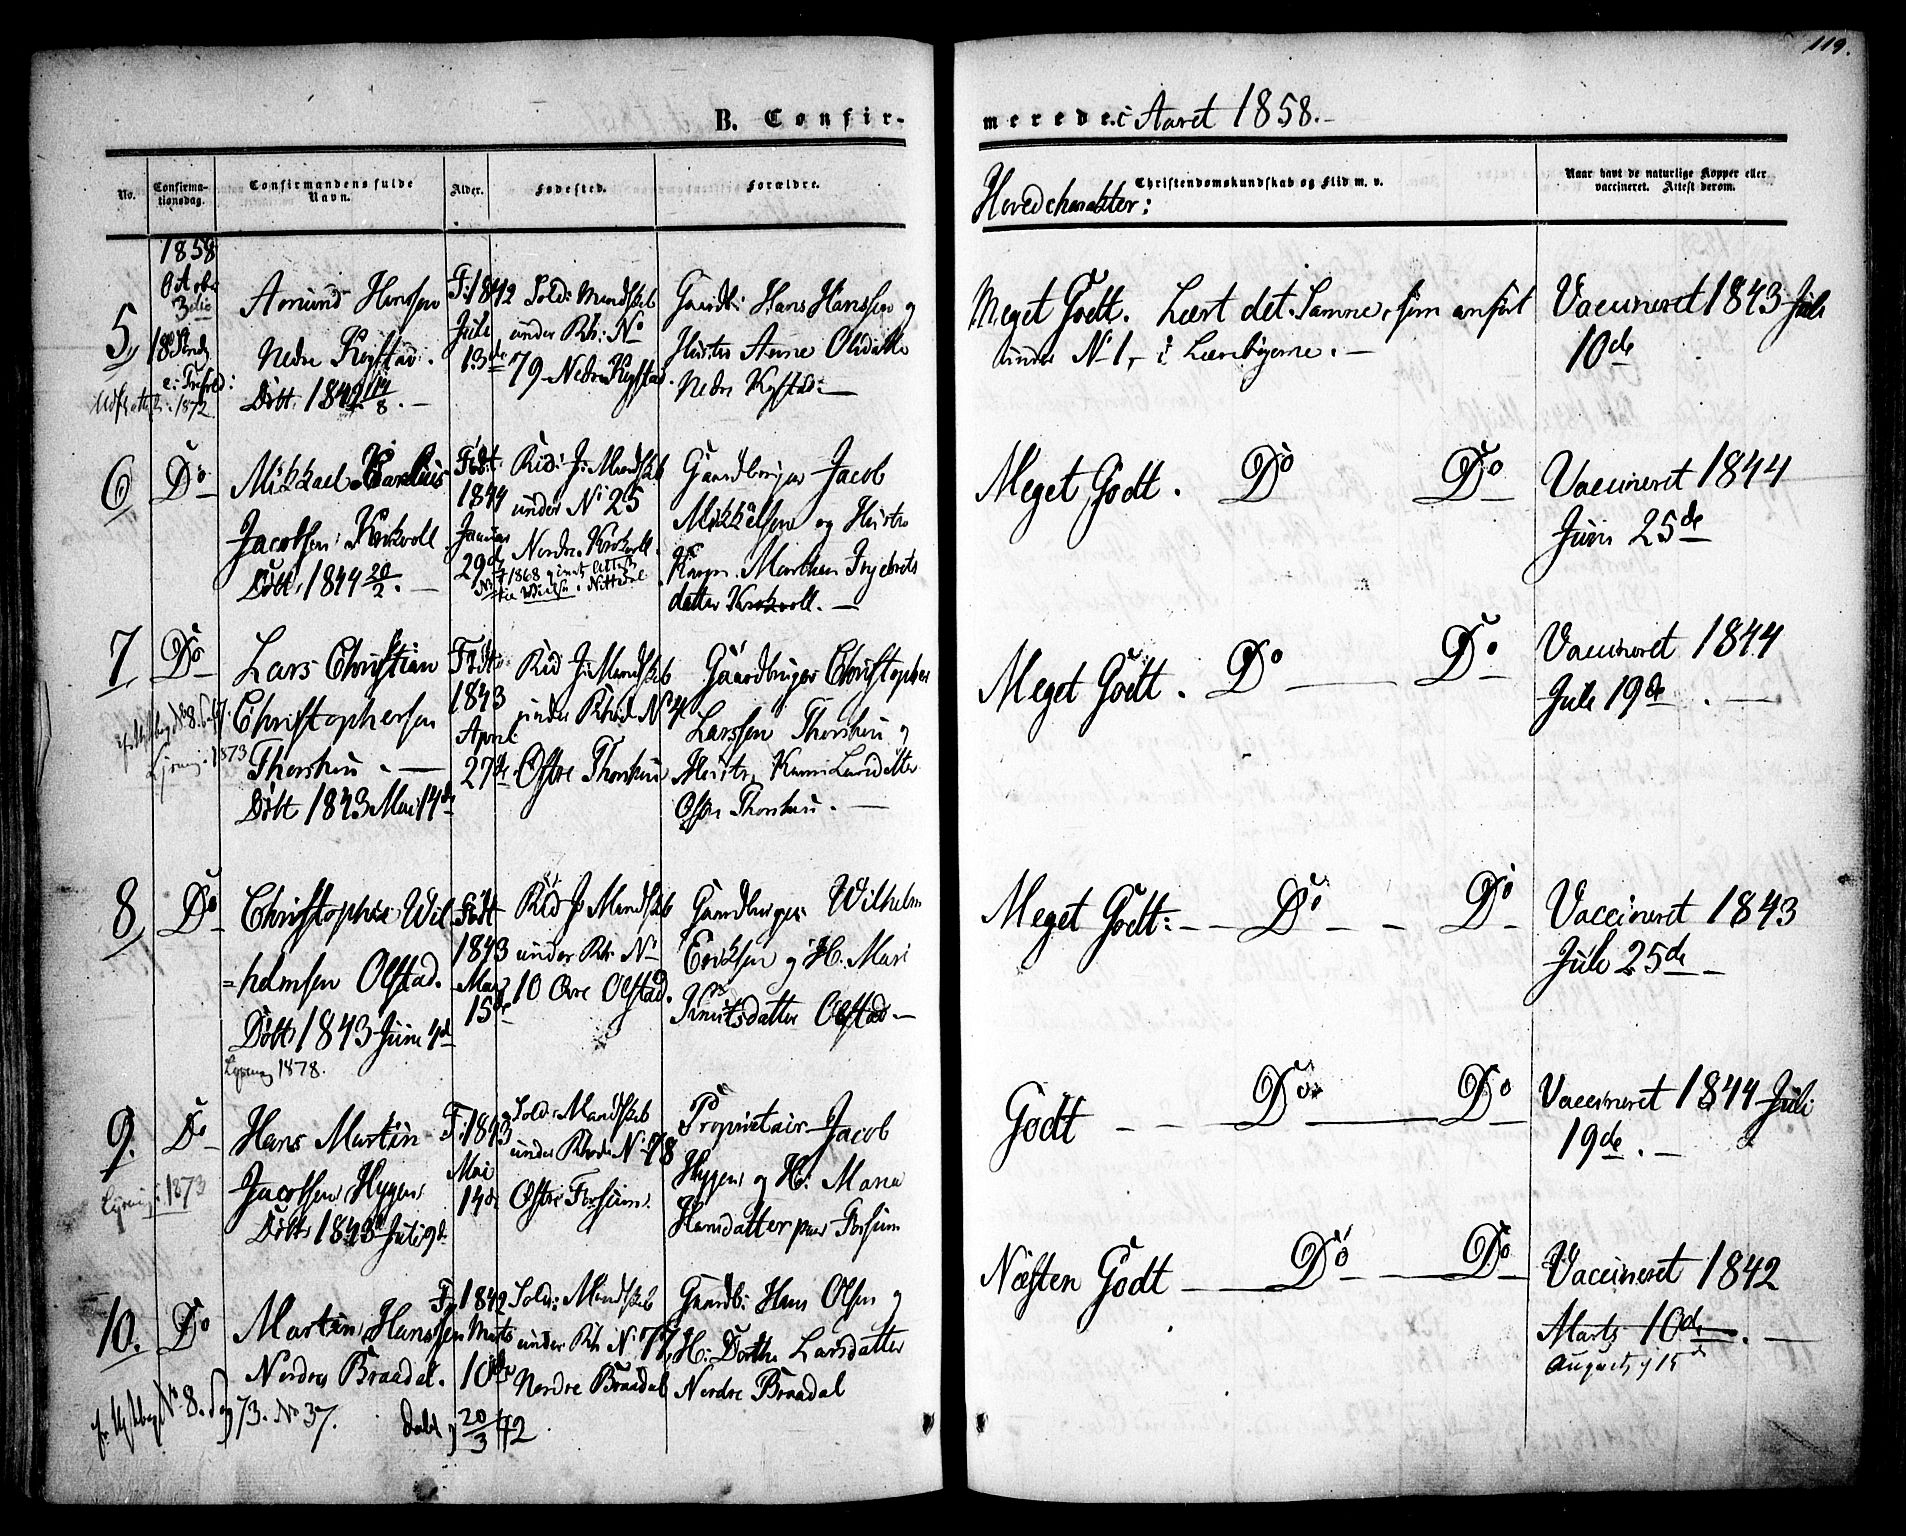 119.
B. Confirmerede. i Aaret 1858.
No.
Confirmationsdag.
Confirmandens fulde Navn.
Alder.
Fødested.
Forældre.
Christendomskundskab og Flid m. v.
Hovedcharakter:
Naar havt de naturlige Kopper eller vaccineret. Attest derom.
1858
5,
Amund Hanssen
Nedre Kystad.
Døbt. 1842 14/8.
F. 1842
Juli
13de
Sold: Mandskab
under Rh: No
79 Nedre Kystad.
Gaardb: Hans Hanssen og
Hustru Anne Olsdatter
Nedre Kystad.
Meget Godt. Lært det Samme, som anført
under No 1, i Lærebøgerne.
Vaccineret 1843 Juli
10de
6,
Do
Mikkael Karelius
Jacobsen Krokvoll
Døbt, 1844 20/2.
Født.
1844
Januar
29de
Rid: J: Mandskab
under No 25
Nordre Krokvoll.
Gaardbruger Jacob
Mikkelsen og Hustru
Karen Marthea Ingebrets
datter Krokvoll.
Meget Godt. Do Do
Vaccineret 1844
Juni 25de
7,
Do
Lars Christian
Christophersen
Thorshou.
Døbt 1843 Mai 14de
1873
Født
1843
April
27de
Rid J: Mandskab
under Rhode No 4
Østre Thorshou
Gaardbruger Christopher
Larssen Thorshou og
Hustru Karen Larsdatter
Østre Thorshou.
Meget Godt. Do Do
Vaccineret 1844
Juli 19de.
8,
Do
Christopher Wil
=helmsen Olstad.
Døbt 1843 Juni 4de
1878.
Født
1843
Mai
15de
Rid J: Mandskab
under Rh: No
10 Øvre Olstad.
Gaardbruger Wilhelm
Eriksen og H. Mari
Knutsdatter Olstad
Meget Godt: Do Do
Vaccineret 1843
Juli 25de
9.
Do
Hans Martin
Jacobsen Hygen
Døbt 1843 Juli 9de
1873
F. 1843
Mai
14de
Sold: Mandskab
under Rhode No 78
Østre Forsium.
Proprietair Jacob
Hygen og H: Maria
Hansdatter paa Forsium
Godt Do Do
Vaccineret 1844 Juli
19de.
10.
Do
Martin Hanssen
Nordre Braadal.
F. 1842
Marts
10de
Sold: Mandskab
under Rh: No 77,
Nordre Braadal
Gaardb: Hans Olsen og
H: Dorthe Larsdatter
Nordre Braadal
Næsten Godt Do Do
Vaccineret 1842
Marts 10de.
August 15de
No 8. 73. No 37.
20/3 42.